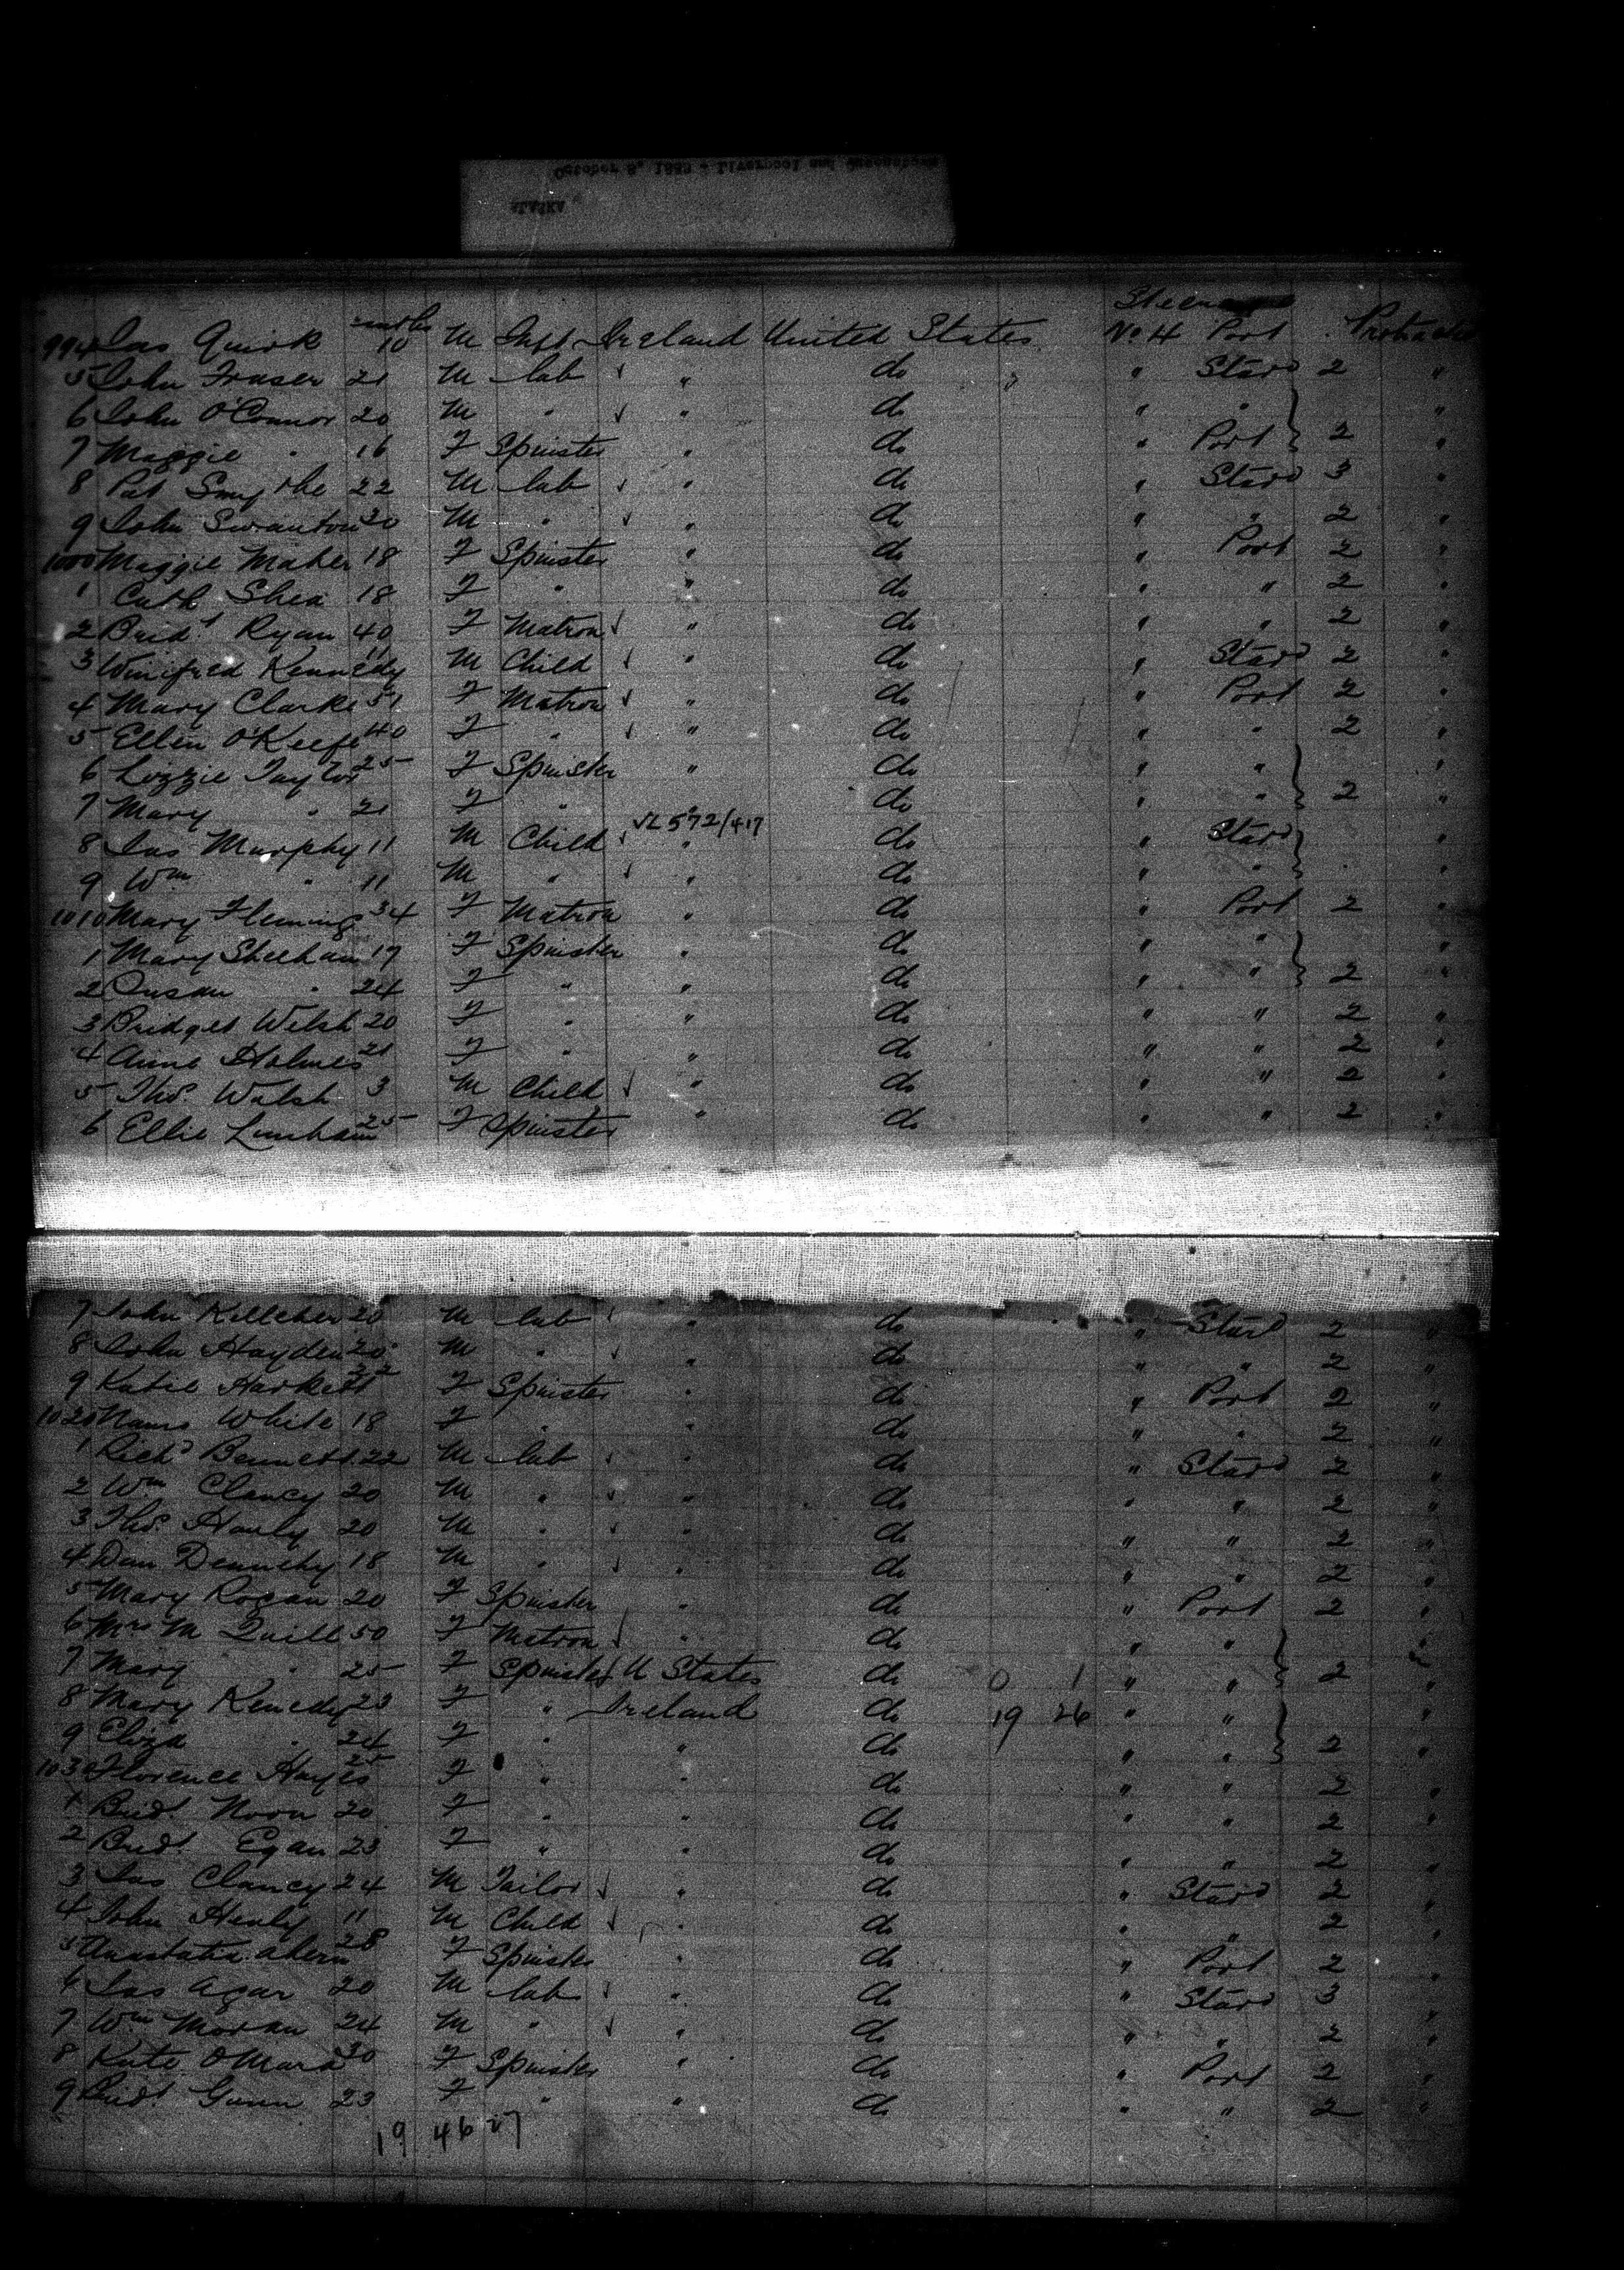 October 8, 1883 - Liverpool and Queenstown
ALASKA
Steerage
994 Jas Quirk months 10 M Inft Ireland United States No 4 Port Protracted
5 John Fraser 21 M lab ✓ " do " " Starb 2 "
6 John O'Connor 20 M " ✓ " do " " "
7 Maggie " 16 F Spinster " do " Port 2 "
8 Pat Smythe 22 M lab ✓ " do " Starb 3 "
9 John Swanton 20 M " ✓ " do " " 2 "
1000 Maggie Maher 18 F Spinster " do " Port 2 "
1 Cath Shea 18 F " " do " " 2 "
2 Bridt Ryan 40 F Matron ✓ " do " " 2 "
3 Winifred Kennedy 11 M Child ✓ " do " Starb 2 "
4 Mary Clarke 51 F Matron ✓ " do " Port 2 "
5 Ellen O'Keefe 40 F " ✓ " do " " 2 "
6 Lizzie Taylor 25 F Spinster " do " " "
7 Mary " 21 F " " do " " 2 "
VL 572/417
8 Jas Murphy 11 M Child ✓ " do " Starb "
9 Wm " 11 M " ✓ " do " " "
1010 Mary Fleming 34 F Matron " do " Port 2 "
1 Mary Sheehan 17 F Spinster " do " " "
2 Susan " 24 F " " do " " 2 "
3 Bridget Welsh 20 F " " do " " 2 "
4 Anne Holmes 21 F " " do " " 2 "
5 Thos Walsh 3 M Child ✓ " do " " 2 "
6 Ellie Linehan 25 F Spinster " do " " 2 "
7 John Kelleher 20 M lab ✓ " do " Starb 2 "
8 John Hayden 20 M " ✓ " do " " 2 "
9 Katie Harkett 22 F Spinster " do " Port 2 "
1020 White 18 F " " do " " 2 "
1 Richd Bennett 22 M lab ✓ " do " Starb 2 "
2 Wm Clancy 20 M " ✓ " do " " 2 "
3 Thos Hanly 20 M " ✓ " do " " 2 "
4 Dan Dennehy 18 M " ✓ " do " " 2 "
5 Mary Rogan 20 F Spinster " do " Port 2 "
6 Mrs M Quill 50 F Matron ✓ " do " " "
7 Mary " 25 F Spinster ✓ U States do 0 1 " " 2 "
8 Mary Kenedy 23 F " Ireland do 19 26 " " "
9 Eliza " 24 F " " do " " 2 "
1030 Florence Hayes 25 F " " do " " 2 "
1 Bridt Noon 20 F " " do " " 2 "
2 Bridt Egan 23 F " " do " " 2 "
3 Jas Clancy 24 M Tailor ✓ " do " Starb 2 "
4 John Henly 11 M Child ✓ " do " " 2 "
5 Anastatia Ahern 28 F Spinster " do " Port 2 "
6 Jas Agar 20 M lab ✓ " do " Starb 3 "
7 Wm Moran 24 M " ✓ " do " " 2 "
8 Kate O'Mara 30 F Spinster " do " Port 2 "
9 Bridt Gunn 23 F " " do " " 2 "
19 46 27